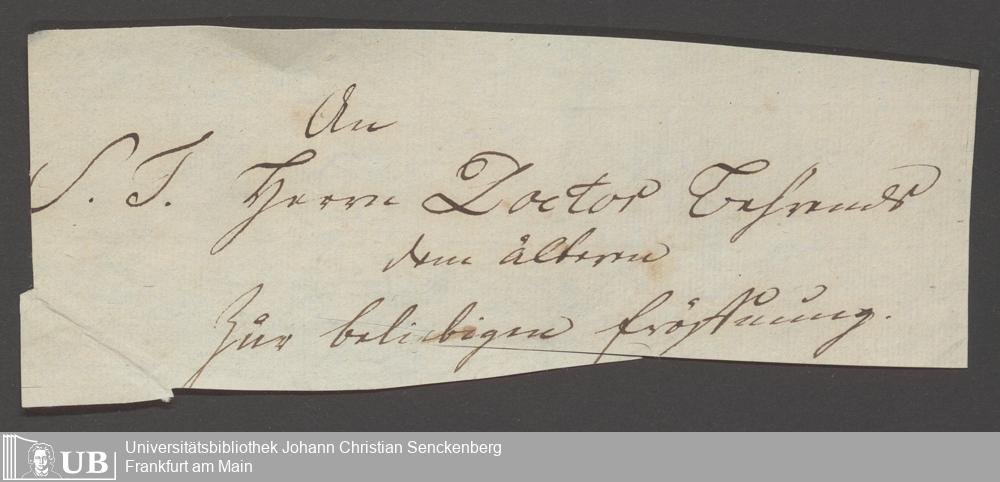 An
S. T. Herrn Doctor Behrends
dem ältern
Zur beliebigen Eröffnung.
UB
Universitätsbibliothek Johann Christian Senckenberg
Frankfurt am Main